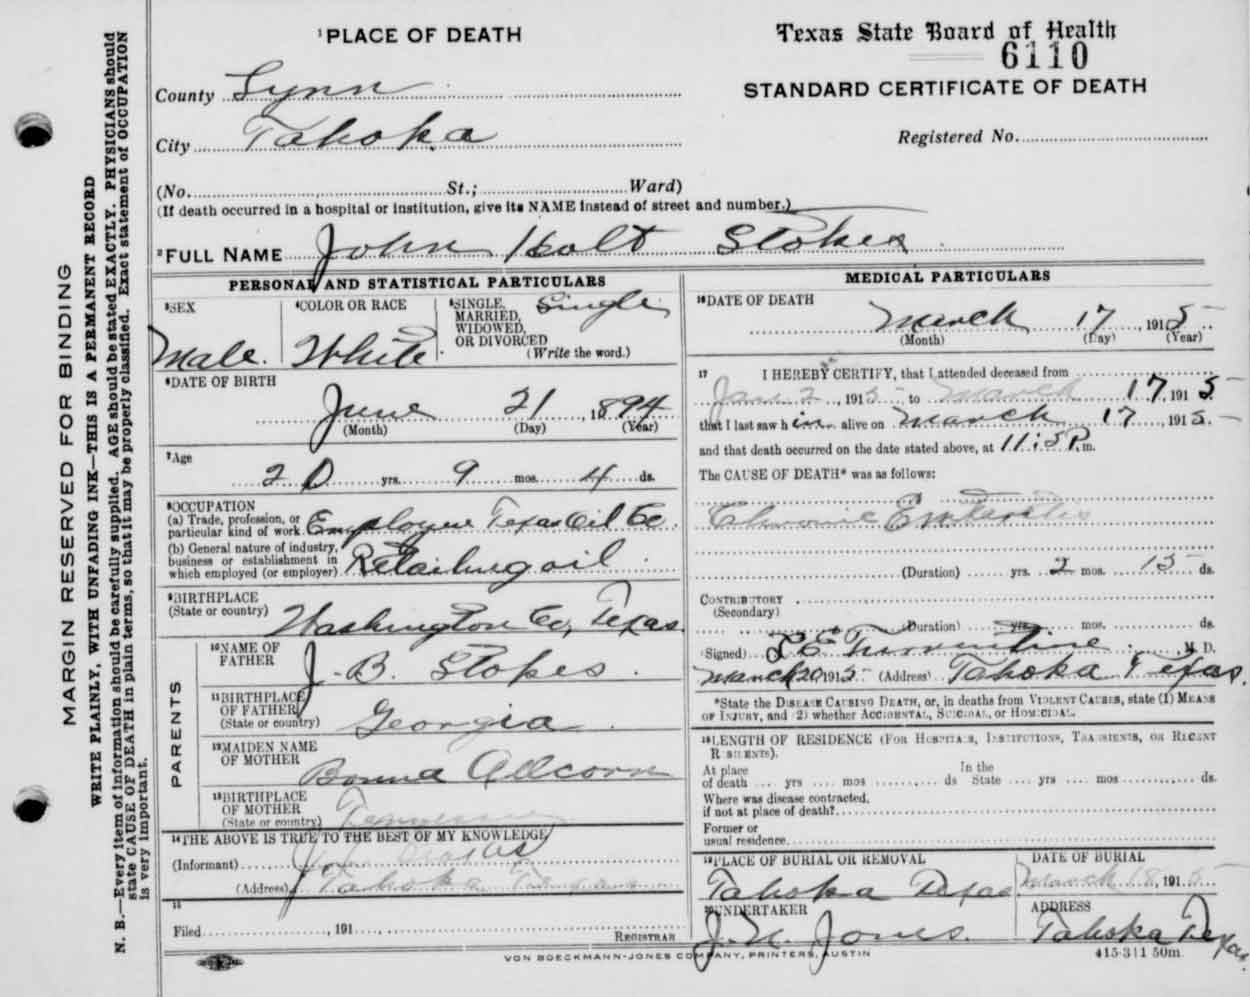 ¹PLACE OF DEATH
Texas State Board of Health
6110
STANDARD CERTIFICATE OF DEATH
County Lynn
City Tahoka
Registered No.
(No. St.; Ward)
(If death occurred in a hospital or institution, give its NAME instead of street and number.)
²FULL NAME John Holt Stokes
PERSONAL AND STATISTICAL PARTICULARS
³SEX
Male.
⁴COLOR OR RACE
White
⁵SINGLE, MARRIED, WIDOWED, OR DIVORCED
Single
(Write the word.)
⁶DATE OF BIRTH
June 21, 1894
(Month) (Day) (Year)
⁷Age
20 yrs. 9 mos. 4 ds.
⁸OCCUPATION
(a) Trade, profession, or particular kind of work. Employee Texas Oil Co
(b) General nature of industry, business or establishment in which employed (or employer) Retailing oil
⁹BIRTHPLACE
(State or country) Washington Co, Texas
PARENTS
¹⁰NAME OF FATHER J. B. Stokes
¹¹BIRTHPLACE OF FATHER (State or country) Georgia
¹²MAIDEN NAME OF MOTHER Allcorn
¹³BIRTHPLACE OF MOTHER (State or country) Tennessee
¹⁴THE ABOVE IS TRUE TO THE BEST OF MY KNOWLEDGE
(Informant)
(Address) Tahoka Texas
¹⁵
Filed , 191
REGISTRAR
MEDICAL PARTICULARS
¹⁶DATE OF DEATH
March 17, 1915
(Month) (Day) (Year)
¹⁷ I HEREBY CERTIFY, that I attended deceased from
Jan 2, 1915 to March 17, 1915
that I last saw him alive on March 17, 1915
and that death occurred on the date stated above, at 11:5 P.m.
The CAUSE OF DEATH* was as follows:
Chronic Enteritis
(Duration) yrs. 2 mos. 15 ds.
CONTRIBUTORY
(Secondary)
(Duration) yrs. mos. ds.
(Signed) , M. D.
March 20 1915 (Address) Tahoka Texas.
*State the DISEASE CAUSING DEATH, or, in deaths from VIOLENT CAUSES, state (1) MEANS
OF INJURY, and (2) whether ACCIDENTAL, SUICIDAL, or HOMICIDAL.
¹⁸LENGTH OF RESIDENCE (FOR HOSPITALS, INSTITUTIONS, TRANSIENTS, OR RECENT
RESIDENTS).
At place of death yrs mos ds In the State yrs mos ds.
Where was disease contracted, if not at place of death?
Former or usual residence
¹⁹PLACE OF BURIAL OR REMOVAL
Tahoka Texas
DATE OF BURIAL
March 18, 1915
²⁰UNDERTAKER
J. N. Jones.
ADDRESS
Tahoka Texas
VON BOECKMANN-JONES COMPANY, PRINTERS, AUSTIN
415-311 50m
MARGIN RESERVED FOR BINDING
WRITE PLAINLY, WITH UNFADING INK—THIS IS A PERMANENT RECORD
N. B.—Every item of information should be carefully supplied. AGE should be stated EXACTLY. PHYSICIANS should
state CAUSE OF DEATH in plain terms, so that it may be properly classified. Exact statement of OCCUPATION
is very important.